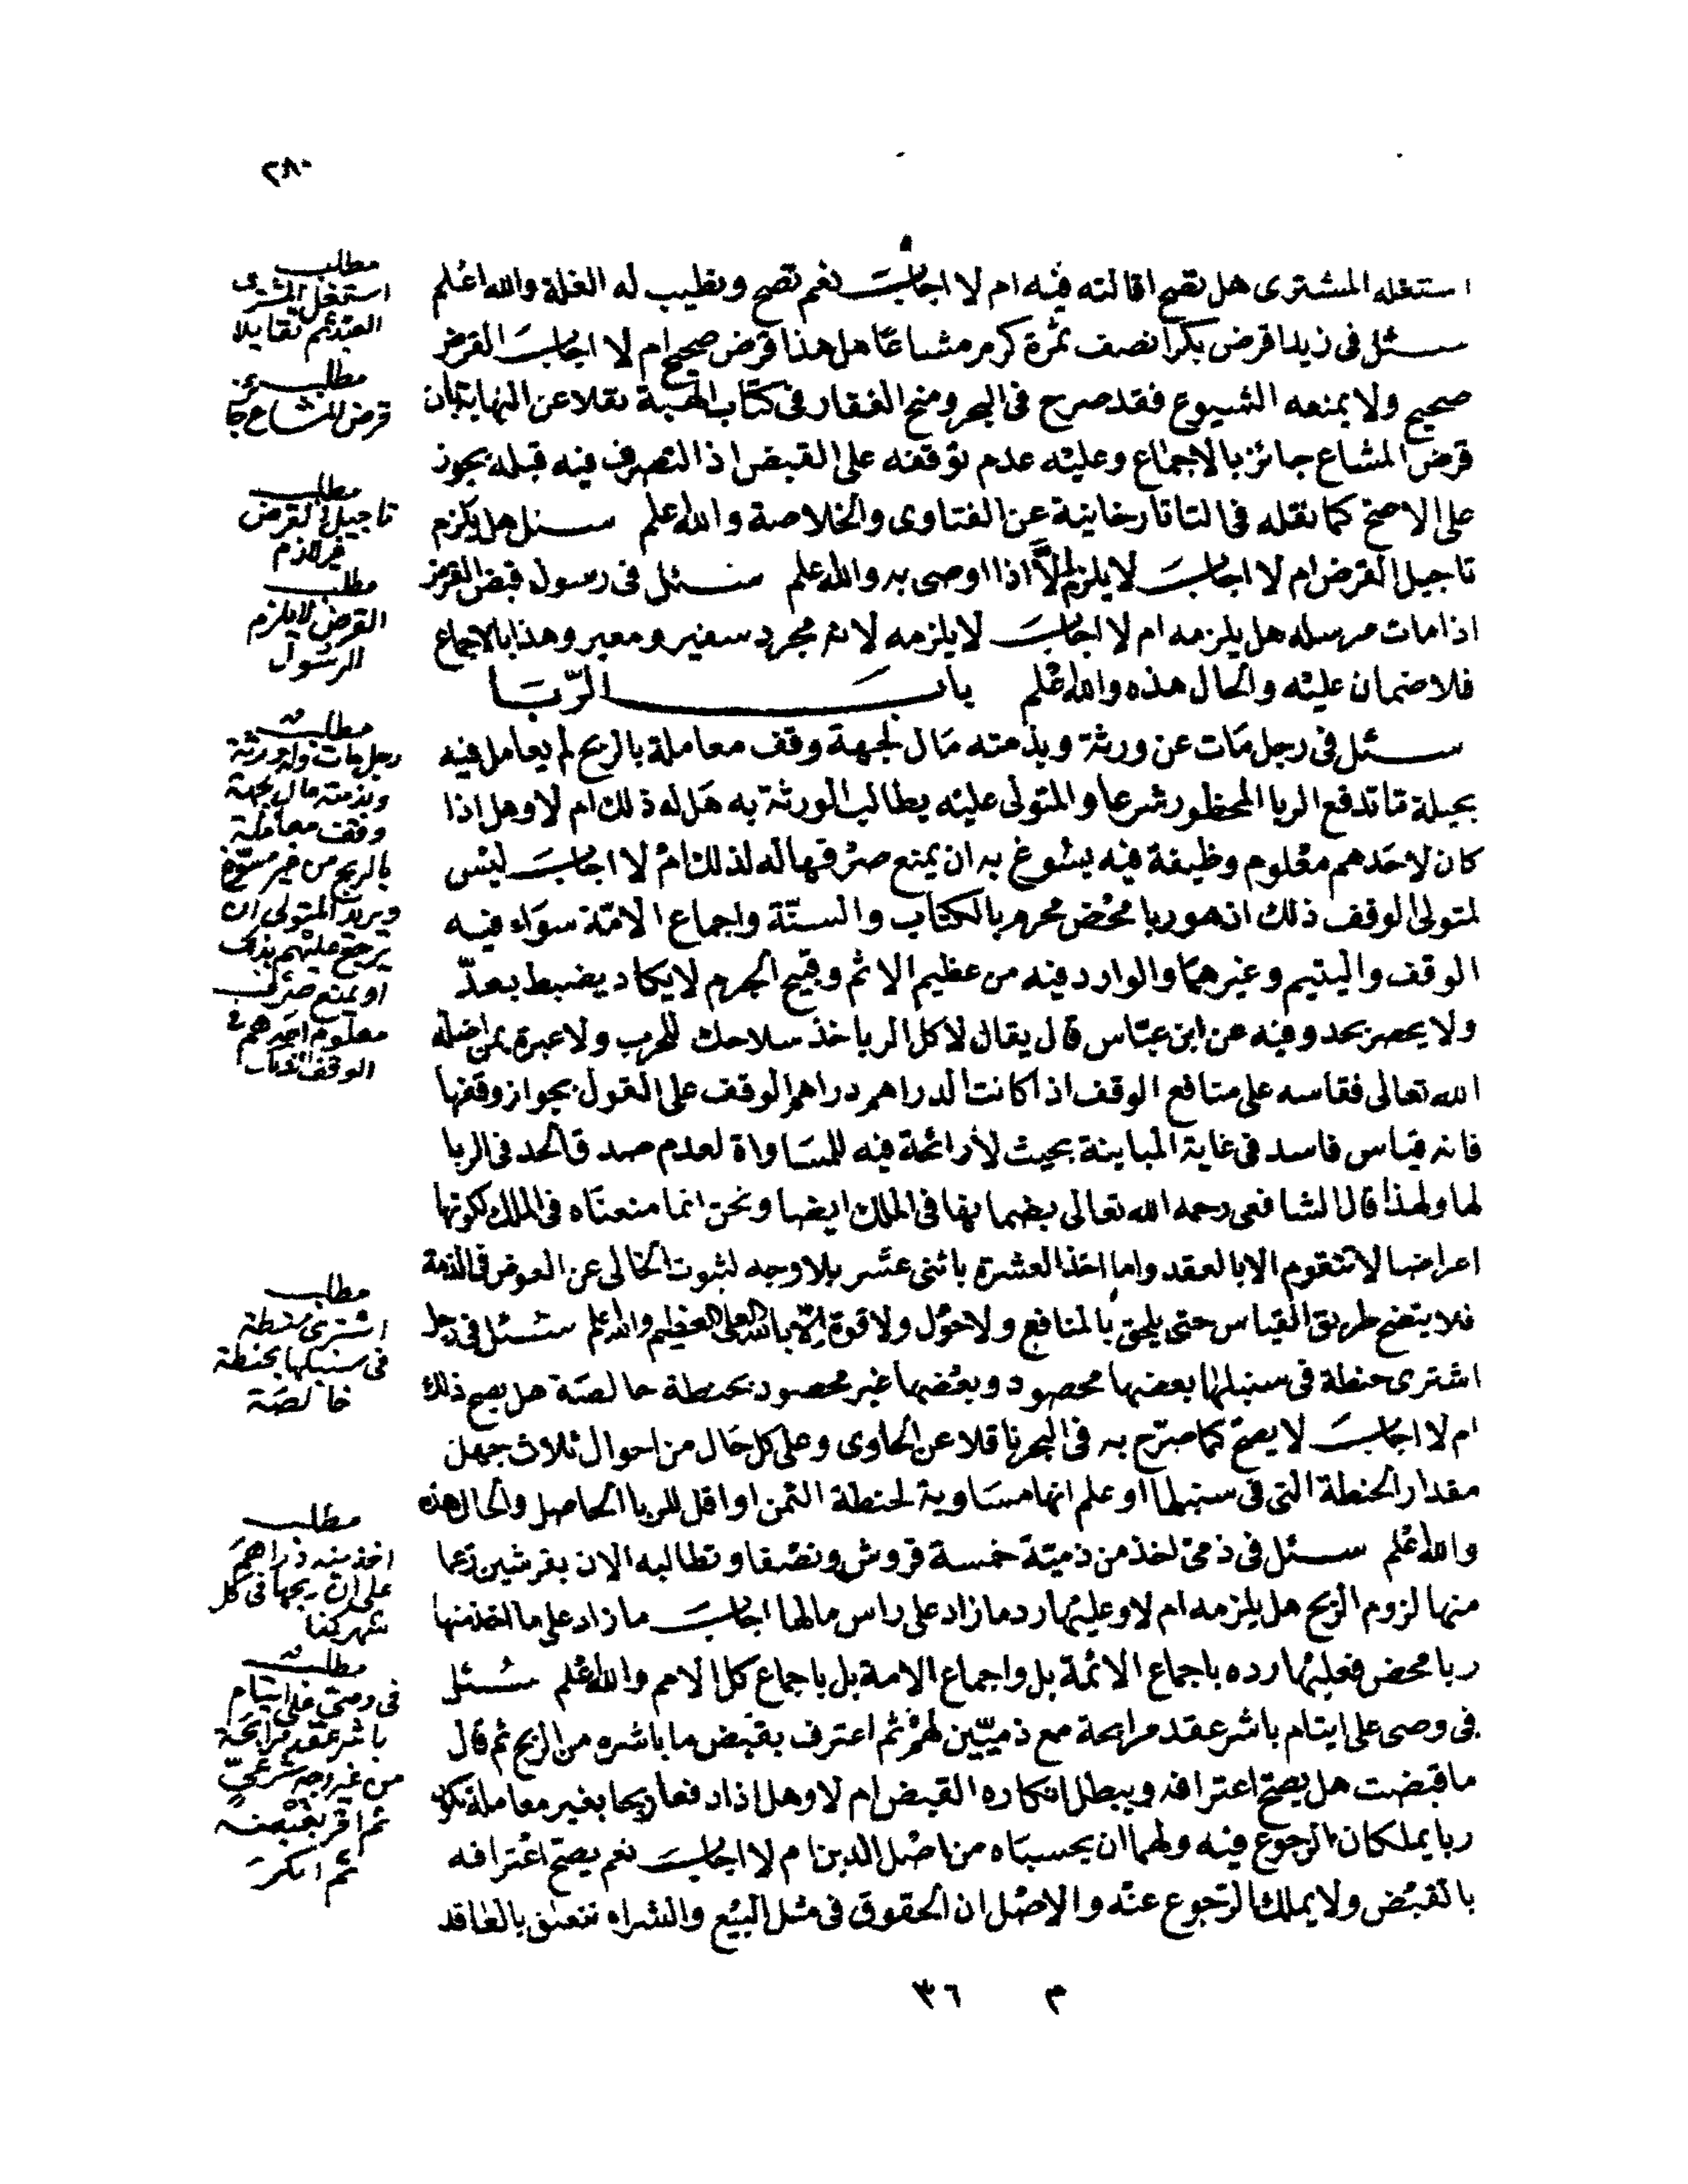 ٢٨٠
استغله المشترى هل تصح اقالته فيه ام لا اجاب نعم تصح وتطيب له الغلة والله اعلم
سئل فى زيد اقرض بكرا نصف ثمرة كرم مشاعا هل هذا قرض صحيح ام لا اجاب القرض
صحيح ولا يمنعه الشيوع فقد صرح فى البحر ومنح الغفار فى كتاب الهبة نقلا عن النهاية بان
قرض المشاع جائز بالاجماع وعليه عدم توقفه على القبض اذ التصرف فيه قبله يجوز
على الاصح كما نقله فى التاتارخانية عن الفتاوى والخلاصة والله اعلم سئل هل يلزم
تاجيل القرض ام لا اجاب لا يلزم الا اذا اوصى به والله اعلم سئل فى رسول قبض القرض
اذا مات مرسله هل يلزمه ام لا اجاب لا يلزمه لانه مجرد سفير ومعبر وهذا بالاجماع
فلا ضمان عليه والحال هذه والله اعلم باب الربا
سئل فى رجل مات عن ورثة وبذمته مال لجهة وقف معاملة بالربح لم يعامل فيه
بحيلة ما تدفع الربا المحظور شرعا والمتولى عليه يطالب الورثة به هل له ذلك ام لا وهل اذا
كان لاحدهم معلوم وظيفة فيه يسوغ به ان يمنع صرفها له لذلك ام لا اجاب ليس
لمتولى الوقف ذلك اذ هو ربا محض محرم بالكتاب والسنة واجماع الامة سواء فيه
الوقف واليتيم وغيرهما والوارد فيه من عظيم الاثم وقبيح الجرم لا يكاد يضبط بعد
ولا يحصر بحد وفيه عن ابن عباس قال يقال لاكل الربا خذ سلاحك للحرب ولا عبرة بمن اضله
الله تعالى فقاسه على منافع الوقف اذا كانت الدراهم دراهم الوقف على القول بجواز وقفها
فانه قياس فاسد فى غاية المباينة بحيث لا رائحة فيه للمساواة لعدم صدق الحد فى الربا
لها ولهذا قال الشافعى رحمه الله تعالى بضمانها فى الملك ايضا ونحن انما منعناه فى الملك لكونها
اعراضا لا تتقوم الا بالعقد واما اخذ العشرة باثنى عشر بلا وجه لثبوت الخالى عن العوض فى الذمة
فلا يتضح طريق القياس حتى يلحق بالمنافع ولا حول ولا قوة الا بالله العلى العظيم والله اعلم سئل فى رجل
اشترى حنطة فى سنبلها بعضها محصود وبعضها غير محصود بحنطة خالصة هل يصح ذلك
ام لا اجاب لا يصح كما صرح به فى البحر ناقلا عن الحاوى وعلى كل حال من احوال ثلاث جهل
مقدار الحنطة التى فى سنبلها او علم انها مساوية لحنطة الثمن او اقل للربا الحاصل والحال هذه
والله اعلم سئل فى ذمى اخذ من ذمية خمسة قروش ونصفا وتطالبه الان بقرشين زعما
منها لزوم الربح هل يلزمه ام لا وعليها رد ما زاد على راس مالها اجاب ما زاد على ما اخذ منها
ربا محض فعليها رده باجماع الائمة بل واجماع الامة بل باجماع كل الامم والله اعلم سئل
فى وصى على ايتام باشر عقد مرابحة مع ذميين لهم ثم اعترف بقبض ما باشره من الربح ثم قال
ما قبضت هل يصح اعترافه ويبطل انكاره القبض ام لا وهل اذا دفعا ربحا بغير معاملة يكون
ربا يملكان الرجوع فيه ولهما ان يحسباه من اصل الدين ام لا اجاب نعم يصح اعترافه
بالقبض ولا يملك الرجوع عنه والاصل ان الحقوق فى مثل البيع والشراء تتعلق بالعاقد
مطلب
استغل المشترى
ثم تقايلا
مطلب
قرض المشاع جائز
مطلب
تاجيل القرض
غير لازم
مطلب
القرض لا يلزم
الرسول
مطلب
رجل مات وله ورثة
وبذمته مال لجهة
وقف معاملة
بالربح من غير مسوغ
ويريد المتولى ان
يرجع عليهم بذلك
او يمنع صرف
معلوم احدهم فى
الوقف لذلك
مطلب
اشترى حنطة
فى سنبلها بحنطة
خالصة
مطلب
اخذ منه دراهم
على ان ربحها فى كل
شهر كذا
مطلب
فى وصى على ايتام
باشر عقد مرابحة
من غير وجه شرعى
ثم اقر بقبضه
ثم انكر
م ٣٦